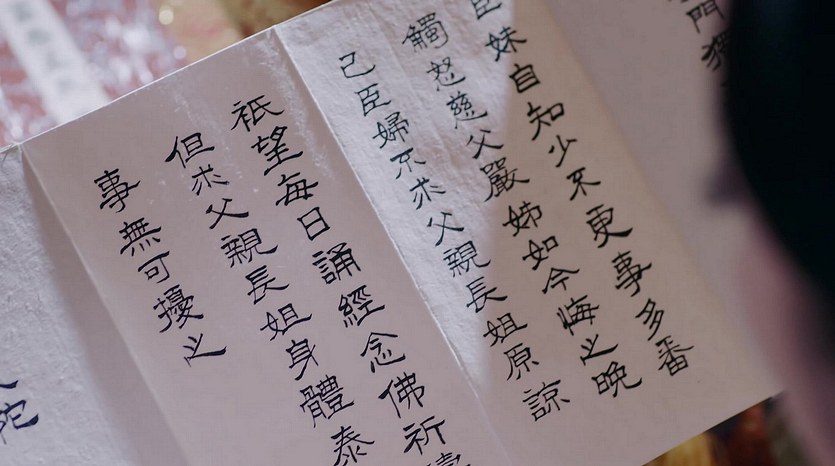 門獨
臣妹自知少不更事多番
觸怒慈父嚴姊如今悔之晚
己臣婦不求父親長姐原諒
祇望每日誦經念佛祈
但求父親長姐身體泰
事無可擾之
陀